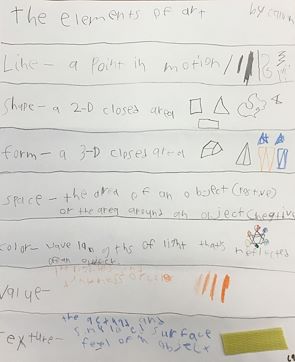 the elements of art by calvin
Line- a point in motion
Shape- a 2-D closed area
form- a 3-D closed area
space- the area of an object (positive)
or the area around an object (negative
color- wave lengths of light thats reflected
of an object.
Value- the lightness and
darkness of color
texture- the actual and
simulated surface
feel of an object